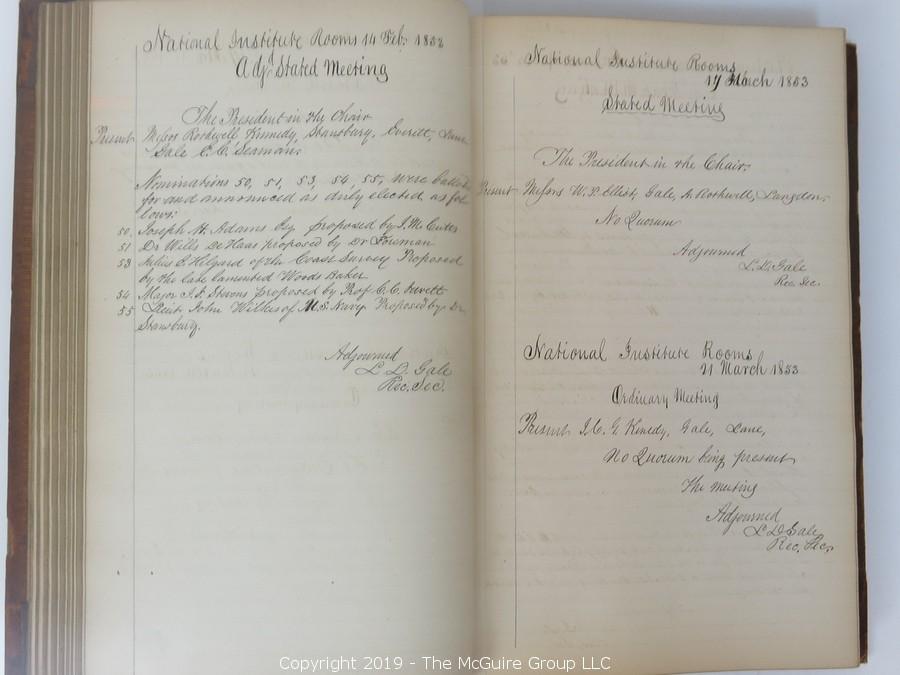 National Institute Rooms 14 Feb. 1853
Adjd Stated Meeting
The President in the Chair
Present Messrs Rockwell, Kennedy, Stansbury, Everett, Lane
Gale C. C. Seaman,
Nominations 50, 51, 53, 54, 55, were balloted
for and announced as duly elected as fol
lows:
50 Joseph H. Adams Esq proposed by J. McCutes
51 Dr Wills DeHaas proposed by Dr Foreman
53 Julius E. Hilgard of the Coast Survey Proposed
by the late lamented Woods Baker
54 Major I. I. Stevens proposed by Prof C. C. Jewett
55 Lieut. John Wilkes of U.S. Navy Proposed by Dr
Stansbury.
Adjourned
L. D. Gale
Rec. Sec.
National Institute Rooms
17 March 1853
Stated Meeting
The President in the Chair.
Present Messrs W. P. Elliot, Gale, A. Rothwell, Langdon.
No Quorum
Adjourned
L. D. Gale
Rec. Sec.
National Institute Rooms
21 March 1853
Ordinary Meeting
Present J. C. G. Kenedy, Gale, Lane,
No Quorum being present
The meeting
Adjourned
L D Gale
Rec. Sec.
Copyright 2019 - The McGuire Group LLC